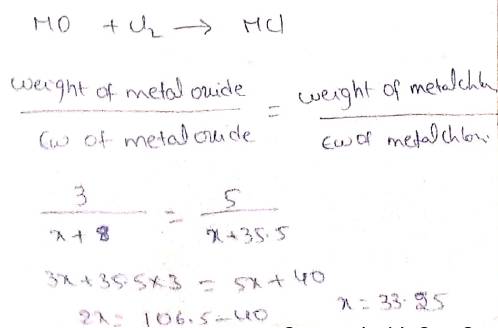 MO + Cl2 → MCl
weight of metal oxide / Ew of metal oxide = weight of metalchlo / Ew of metalchlor.
3 / x + 8 = 5 / x + 35.5
3x + 35.5 x 3 = 5x + 40
2x = 106.5 - 40 x = 33.25